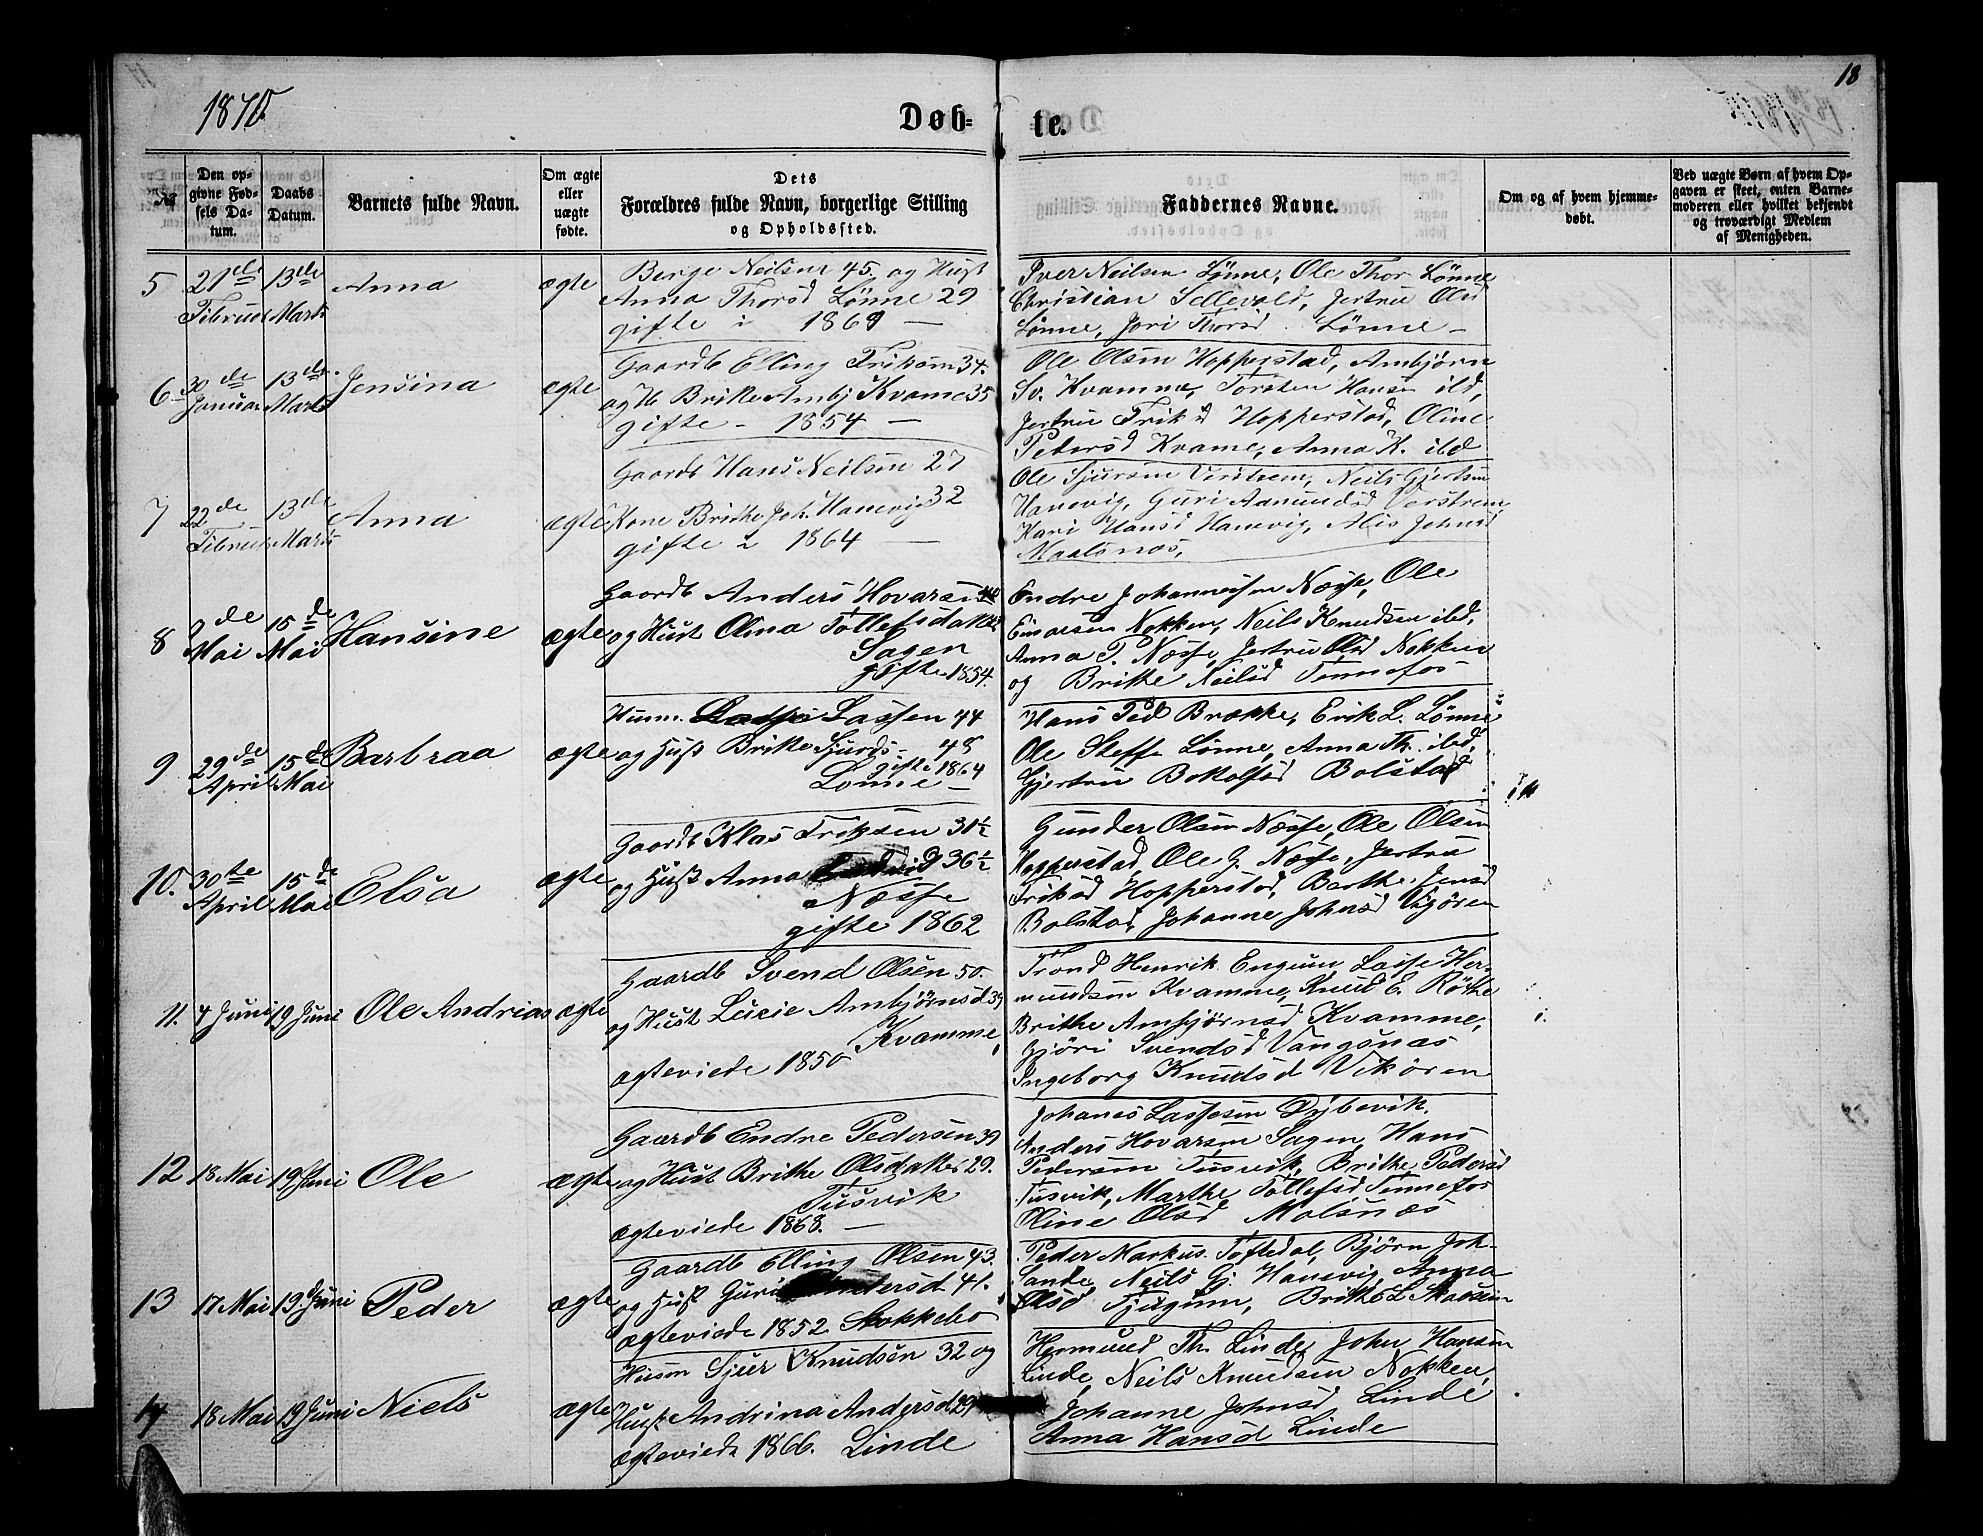 18
1870
Døb-
te.
№
Den op-
givne Fød-
sels Da-
tum.
Daabs
Datum.
Barnets fulde Navn.
Om ægte
eller
uægte
fødte.
Dets
Forældres fulde Navn, borgerlige Stilling
og Opholdssted.
Faddernes Navne.
Om og af hvem hjemme-
døbt.
Ved uægte Børn af hvem Op-
gaven er skeet, enten Barne-
moderen eller hvilket bekjendt
og troværdigt Medlem
af Menigheden.
5
21de
Februar
13de
Marts
Anna
ægte
Berge Neilsen 45. og Hust
Anna Thorsd Lønne 29
gifte i 1869 —
Iver Neilsen Lønne, Ole Thor Lønne
Christian Sellevold, Jertru Olsd
Lønne, Jori Thorsd Lønne —
6
30de
Januar
13de
Marts
Jensina
ægte
Gaardb Elling Eriksøn 34.
og H. Brithe Ambj Kvame 35
gifte - 1854 —
Ole Olsen Hopperstad, Ambjörn
Sv. Kvamme, Torsten Hansen ibd,
Jertru Erik d Hopperstad, Oline
Petersd Kvame, Anna K. ibd
7
22de
Februar
13de
Marts
Anna
ægte
Gaardb Hans Neilsen 27
Kone Brithe Joh. Hanevig 32
gifte i 1864 —
Ole Sjursen Verstrem, Neils Gjertsen
Hanevig, Guri Aamundsd Verstrem
Kari Hansd Hanevig, Alis Johnsd
Maalsnæs,
8
2de
Mai
15de
Mai
Hansine
ægte
Gaardb Anders Hovarsen
og Hust Olina Tollefsdatter
Sagen
gifte 1854.
Endre Johannessen Næsse, Ole
Einarsen Nokken, Neils Knudsen ibd,
Anna P. Næsse, Jertru Olsd Nokken
og Brithe Neilsd Tennefos
9
29de
April
15de
Mai
Barbraa
ægte
Husm. Lasse Lassen 44
og Hust Brithe Sjurds - 48
gifte 1864
Lønne —
Hans Ped Brække, Erik L. Lønne
Ole Steffe Lønne, Anna Th. ibd,
Gjertru Botolfsd Bolstad
10.
30te
April
15de
Mai
Elsa
ægte
Gaardb Klas Eriksen 31½
og Hust Anna 36½
Næsse
gifte 1862
Gunder Olsen Næsse, Ole Olsen
Hopperstad, Ole G. Næsse, Jertru
Eriksd Hopperstad, Barthe Jensd
Bolstad, Johanne Johnsd Vigøren
11.
4 Juni
19 Juni
Ole Andrias
ægte
Gaardb Svend Olsen 50.
og Hust Lucie Ambjörnsd 39
Kvamme,
ægteviede 1850
Trond Henrik Engum Lasse Her-
mundsen Kvamme, Knud E. Röthe
Brithe Ambjörnsd Kvamme,
Gjöri Svendsd Vangsnæs
Ingeborg Knudsd Vikören
12
18 Mai
19 Juni
Ole
ægte
Gaardb Endre Pedersen 39
og Hust Brithe Olsdatter 29.
Tusvik
ægteviede 1868. —
Johanes Lassesen Dybevik.
Anders Hovarsen Sagen, Hans
Pedersen Tusvik, Brithe Pedersd
Tusvik, Marthe Tollefsd Tennefos
Oline Olsd Molsnæs
13
17 Mai
19 Juni
Peder
ægte
Gaardb Elling Olsen 43.
og Hust Guri 41.
ægteviede 1852 Stokkebo
Peder Markus. Toftedal, Bjørn Joh-
Sande, Neils Gj. Hanevig, Anna
Olsd Tjugum, Brithe L.
14
18 Mai
19 Juni
Niels
ægte
Husm Sjur Knudsen 32 og
Hust Andrina Andersd 29
ægteviede 1866. Linde
Hermund Th. Linde, John Hansen
Linde, Neils Knudsen Nokken,
Johanne Johnsd Linde
Anna Hansd Linde